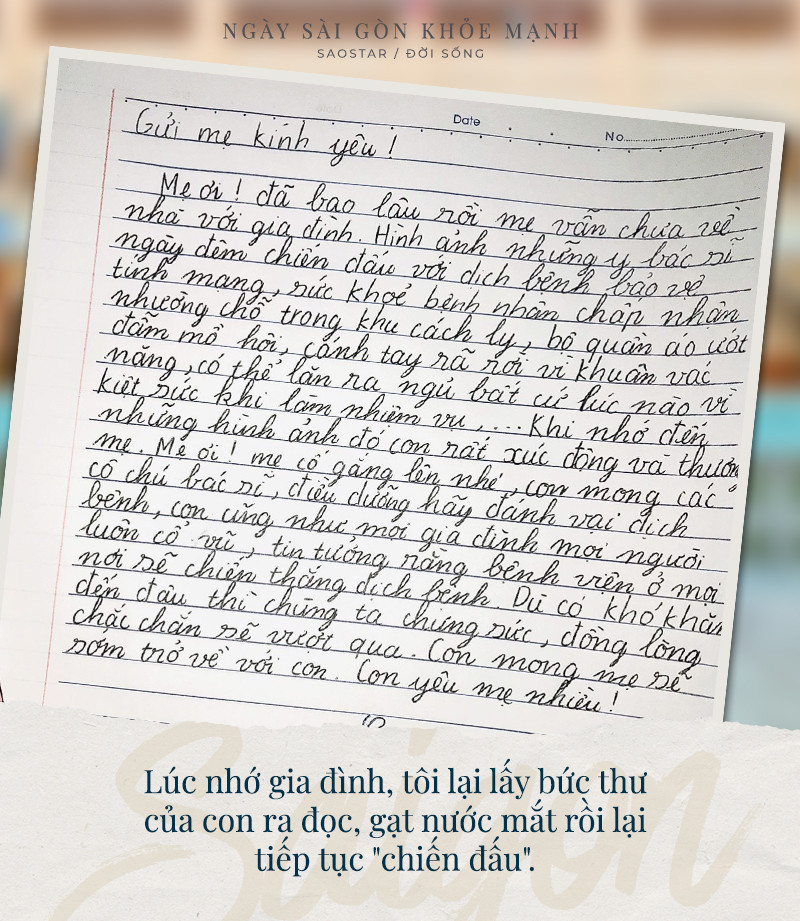 NGÀY SÀI GÒN KHỎE MẠNH
SAOSTAR / ĐỜI SỐNG
Date
No
Gửi mẹ kính yêu !
Mẹ ơi ! đã bao lâu rồi mẹ vẫn chưa về
nhà với gia đình. Hình ảnh những y bác sĩ
ngày đêm chiến đấu với dịch bệnh bảo vệ
tính mạng, sức khoẻ bệnh nhân chấp nhận
nhường chỗ trong khu cách ly, bộ quần áo ướt
đẫm mồ hôi, cánh tay rã rời vì khuân vác
nặng, có thể lăn ra ngủ bất cứ lúc nào vì
kiệt sức khi làm nhiệm vụ, ... Khi nhớ đến
những hình ảnh đó con rất xúc động và thương
mẹ. Mẹ ơi ! mẹ cố gắng lên nhé, con mong các
cô chú bác sĩ, điều dưỡng hãy đánh bại dịch
bệnh, con cũng như mọi gia đình mọi người
luôn cổ vũ, tin tưởng rằng bệnh viện ở mọi
nơi sẽ chiến thắng dịch bệnh. Dù có khó khăn
đến đâu thì chúng ta chung sức, đồng lòng
chắc chắn sẽ vượt qua. Con mong mẹ sẽ
sớm trở về với con. Con yêu mẹ nhiều !
Lúc nhớ gia đình, tôi lại lấy bức thư
của con ra đọc, gạt nước mắt rồi lại
tiếp tục "chiến đấu".
Saigon